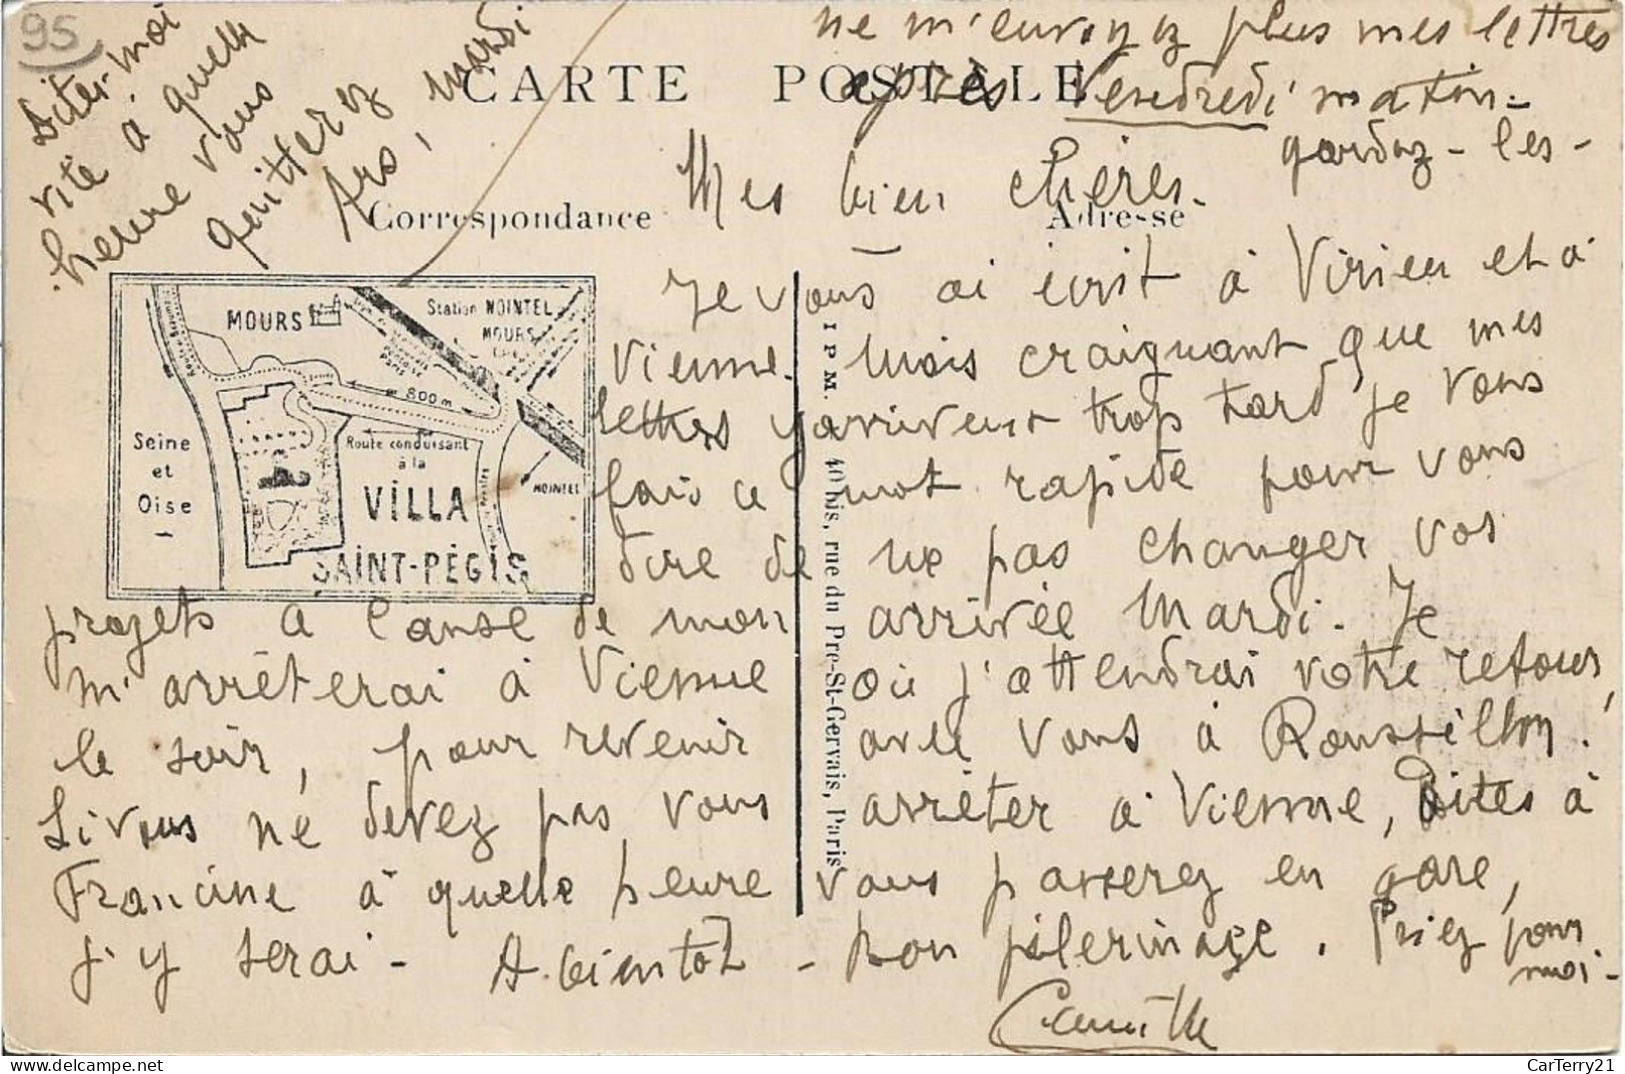 95
Dites-moi
vite à quelle
heure vous
quitterez
Ars, mardi
ne m'envoyez plus mes lettres
après Vendredi matin -
gardez-les -
CARTE POSTALE
Mes bien chères.
Correspondance
Adresse
Je vous ai écrit à Virieu et à
Vienne. Mais craignant que mes
lettres y arrivent trop tard je vous
fais ce mot rapide pour vous
dire de ne pas changer vos
projets à cause de mon arrivée Mardi. Je
m'arrêterai à Vienne où j'attendrai votre retour,
le soir, pour revenir avec vous à Roussillon.
Si vous ne devez pas vous arrêter à Vienne, Dites à
Francine à quelle heure vous passerez en gare,
j'y serai - A bientôt - Bon pèlerinage. Priez pour
moi -
Camille
MOURS
Station NOINTEL
MOURS
800m
Seine
et
Oise
Route conduisant
à la
VILLA
SAINT-RÉGIS
NOINTEL
I P M. 40 bis, rue du Pre-St-Gervais, Paris
CarTerry21